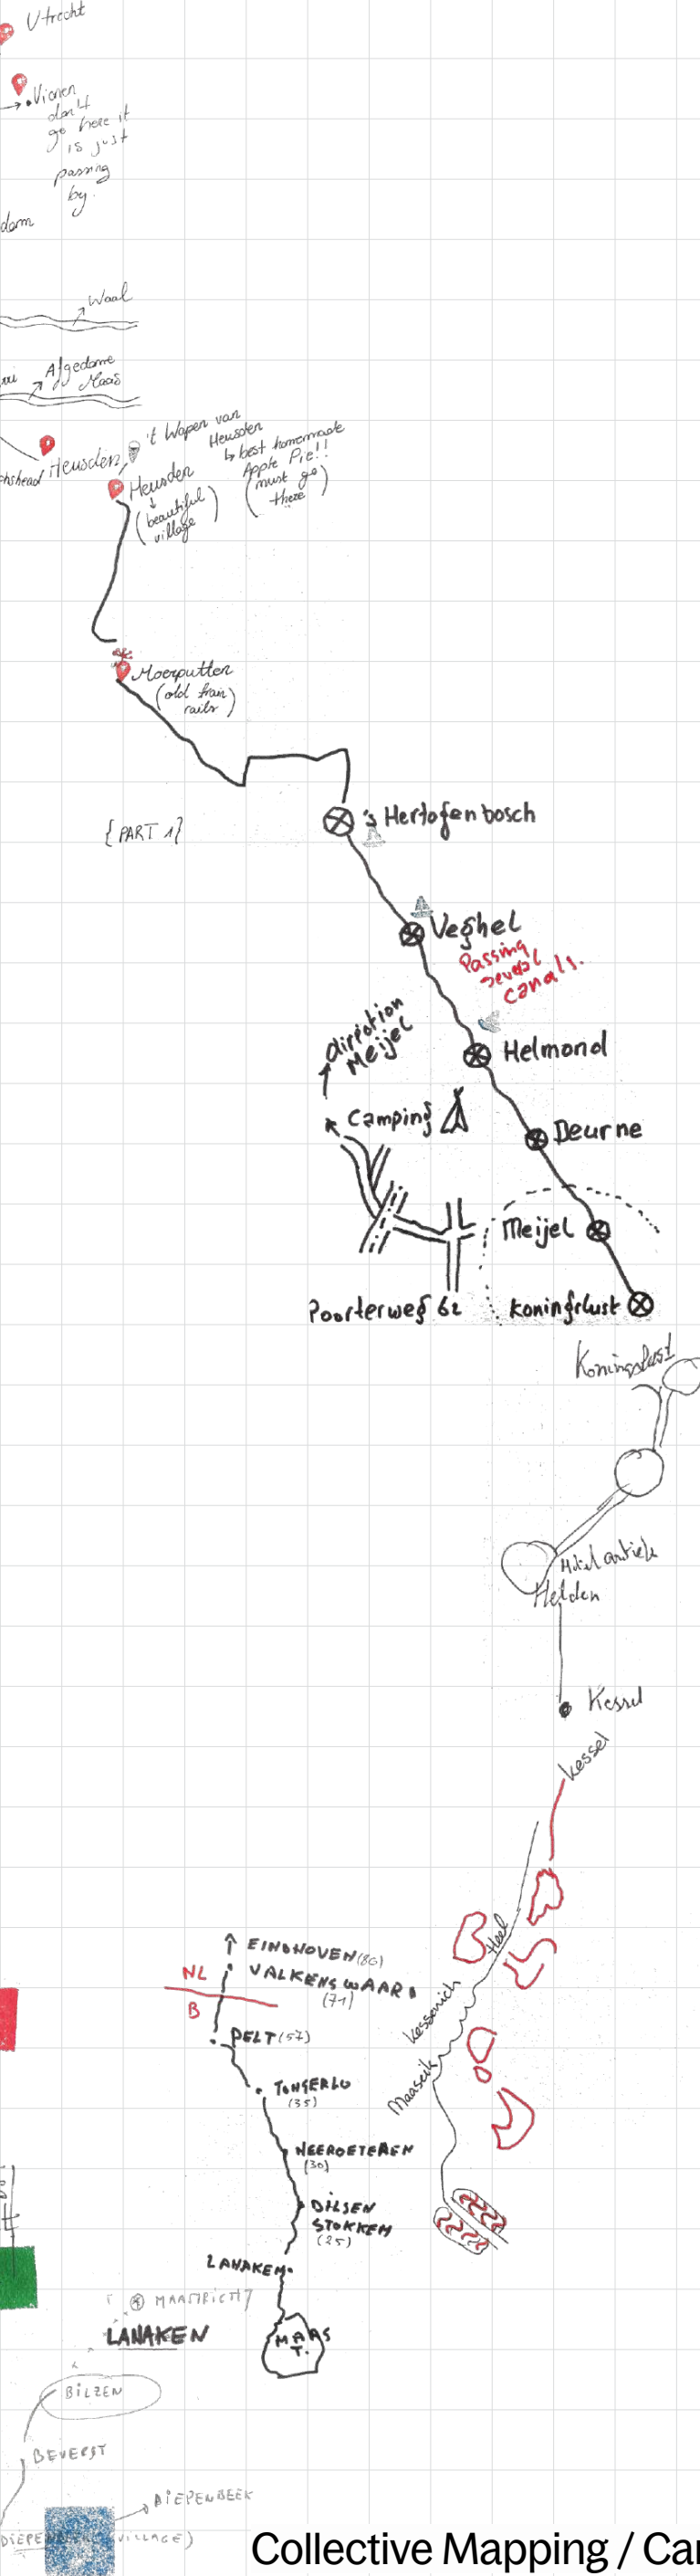 Utrecht
Vianen
don't
go here it
is just
passing
by.
dam
Waal
Afgedamde
Maas
't Wapen van
Heusden
↳ best homemade
Apple Pie!!
(must go
there)
Heusden
Heusden
↓
(beautiful
village)
Moerputten
(old train
rails)
{PART 1}
's Hertogenbosch
Veghel
Passing
several
canals.
Helmond
Deurne
direction
Meijel
Camping
Meijel
Poorterweg 62
Koningslust
Koningslust
Helden
Kessel
Kessel
Heel
Kessenich
Maaseik
EINDHOVEN (86)
NL
VALKENSWAARD
(71)
B
PELT (57)
TONGERLO
(35)
NEEROETEREN
(30)
DILSEN
STOKKEM
(25)
LANAKEN
MAAS
T.
MAASTRICHT
LANAKEN
BILZEN
BEVERST
DIEPENBEEK
(VILLAGE)
Collective Mapping / Car